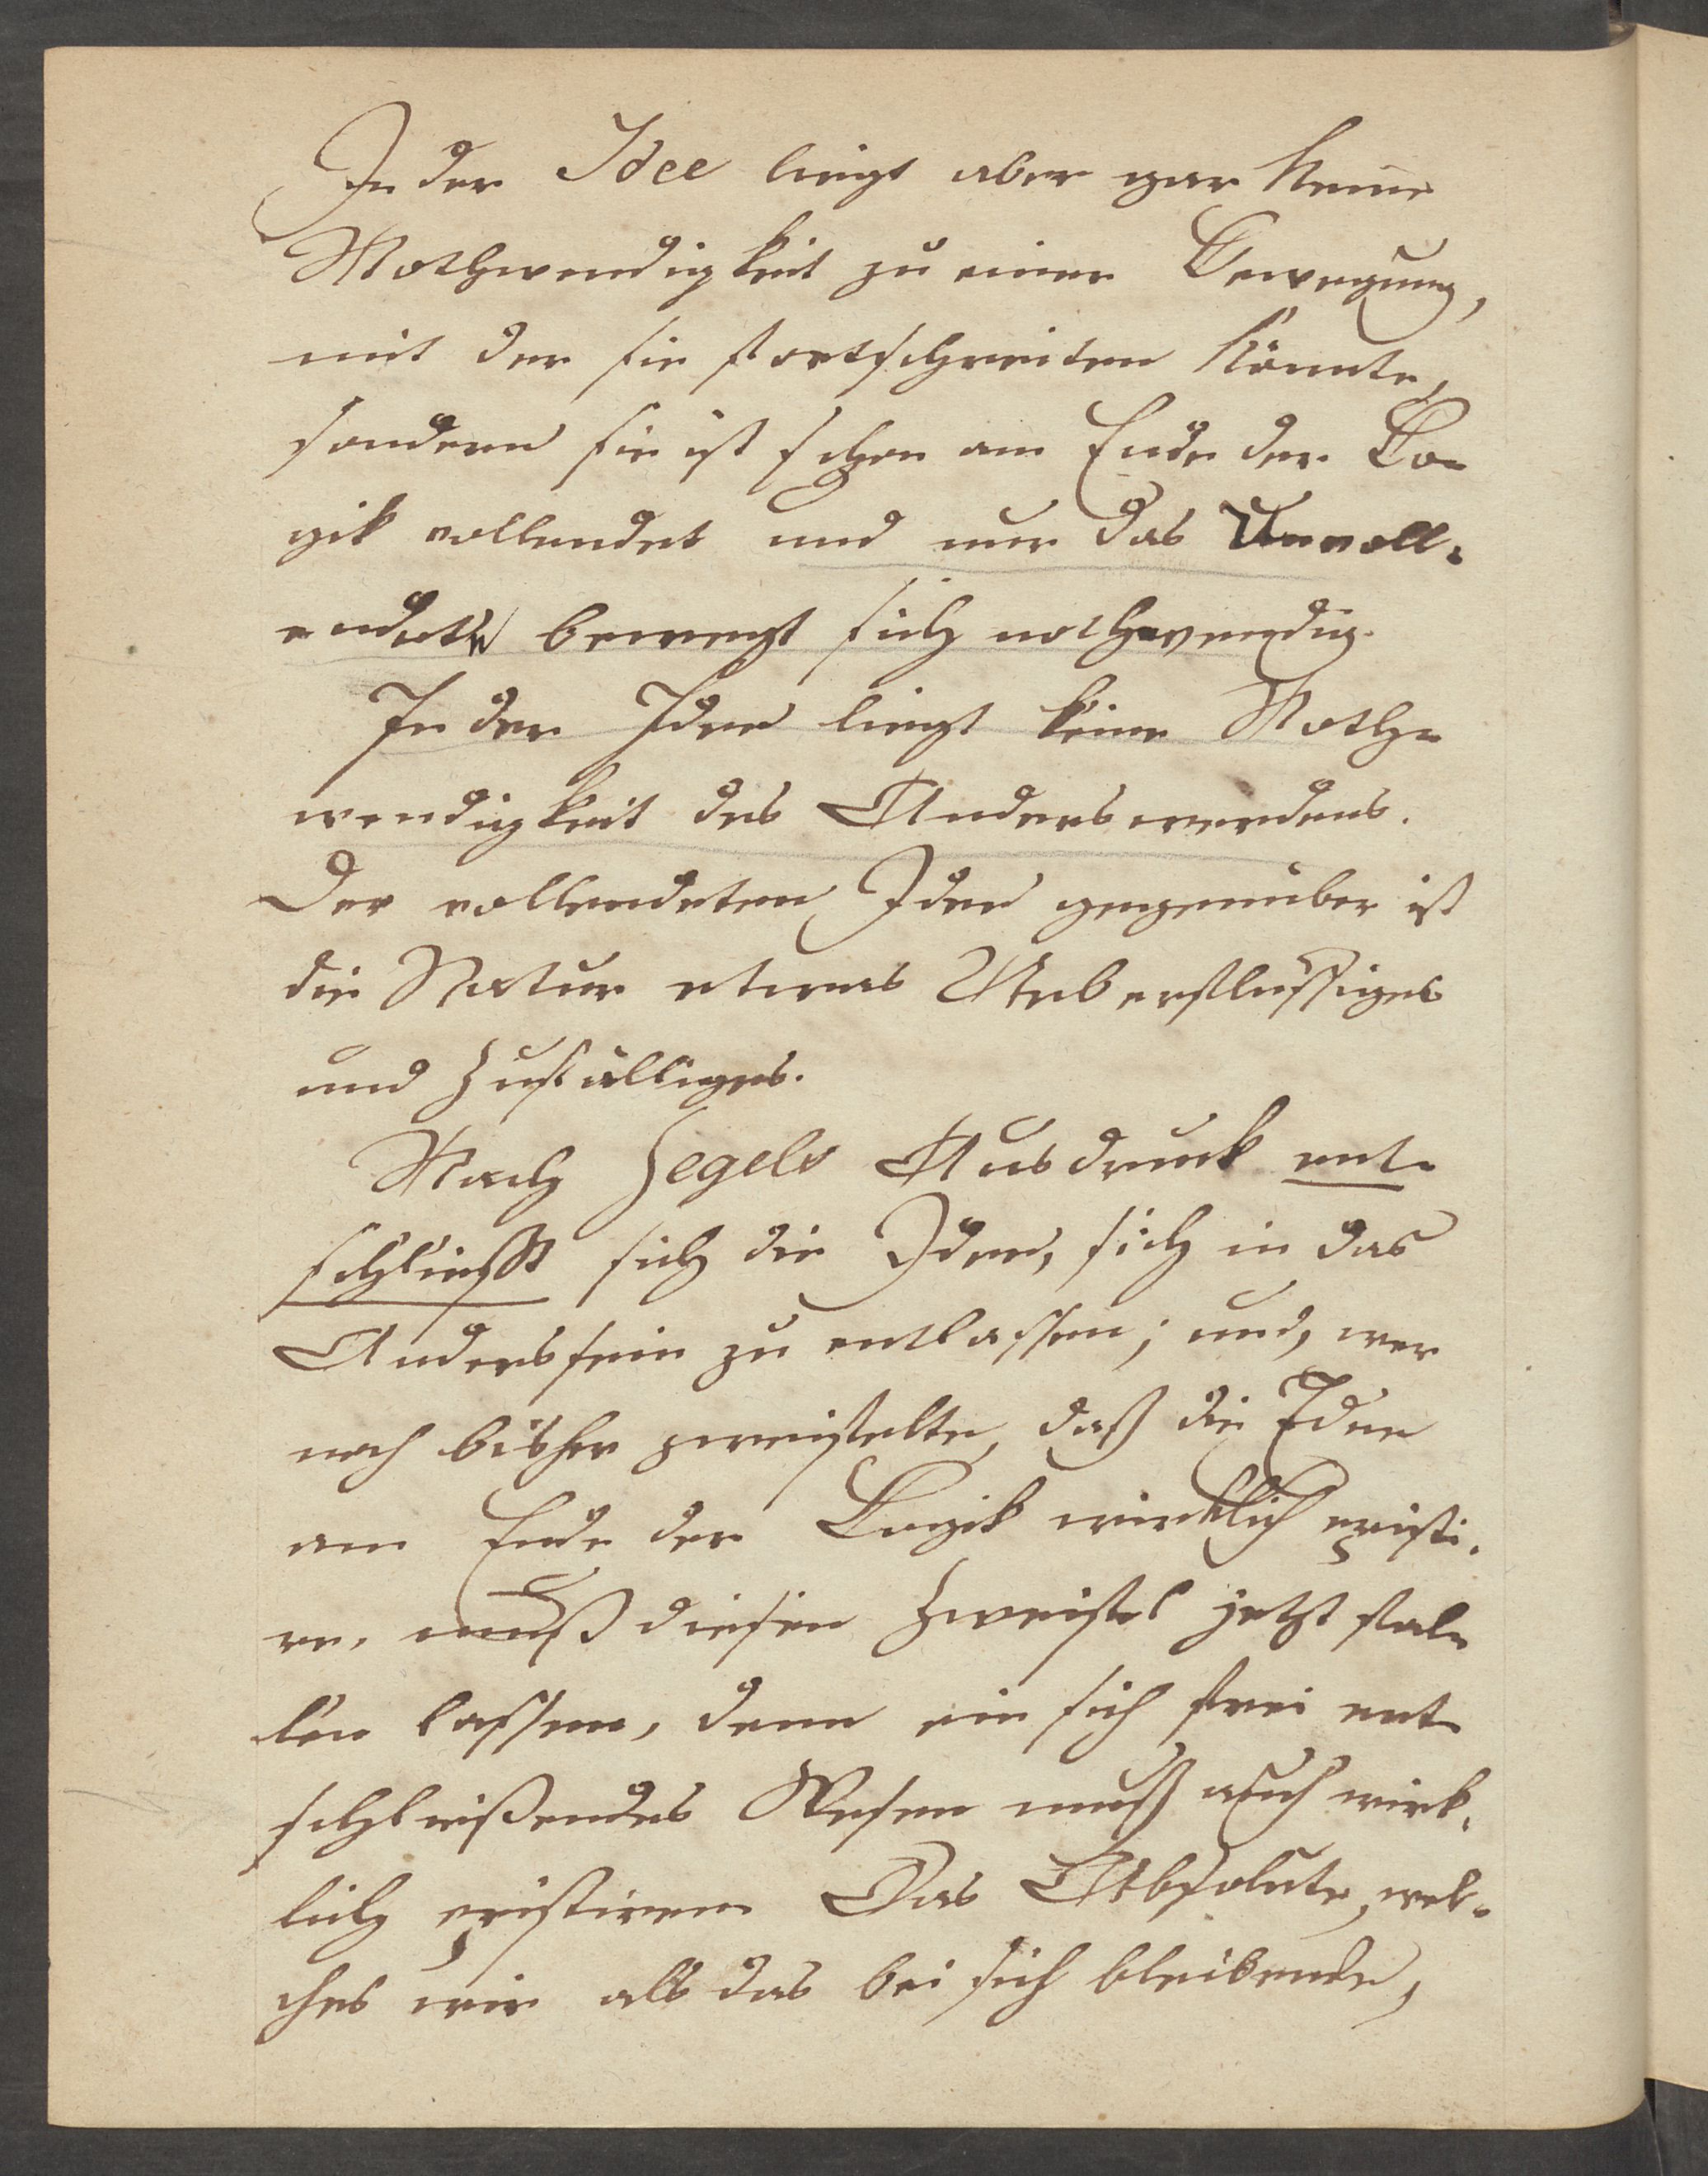 In der Idee liegt aber gar keine
Nothwendigkeit zu einer Bewegung,
mit der sie fortschreiten könnte,
sondern sie ist schon am Ende der Lo-
gik vollendet und nur das Unvoll-
endete bewegt sich nothwendig.
In der Idee liegt keine Noth-
wendigkeit des Anderswerdens.
Der vollendeten Idee gegenüber ist
die Natur etwas Ueberflüssiges
und Zufälliges.
Nach Hegels Ausdruck ent-
schliesst sich die Idee, sich in das
Anderssein zu entlassen; und, wer
noch bisher zweifelte, daß die Idee
am Ende der Logik wirklich existi-
re, muß diesen Zweifel jetzt fal-
len lassen, denn ein sich frei ent-
schleißendes Wesen muß auch wirk-
lich existiren. Das Absolute, wel-
ches wir als das bei sich bleibende,